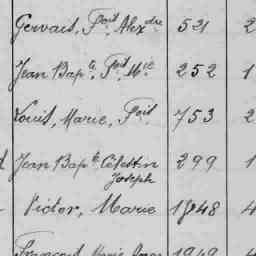 Gervais, Fçois Alexdre 521 2
Jean Bapte, Fçois Mie 252 1
Louis, Marie, Fçois 753 2
Jean Bapte Célestin Joseph 299 1
Victor, Marie 1848 4